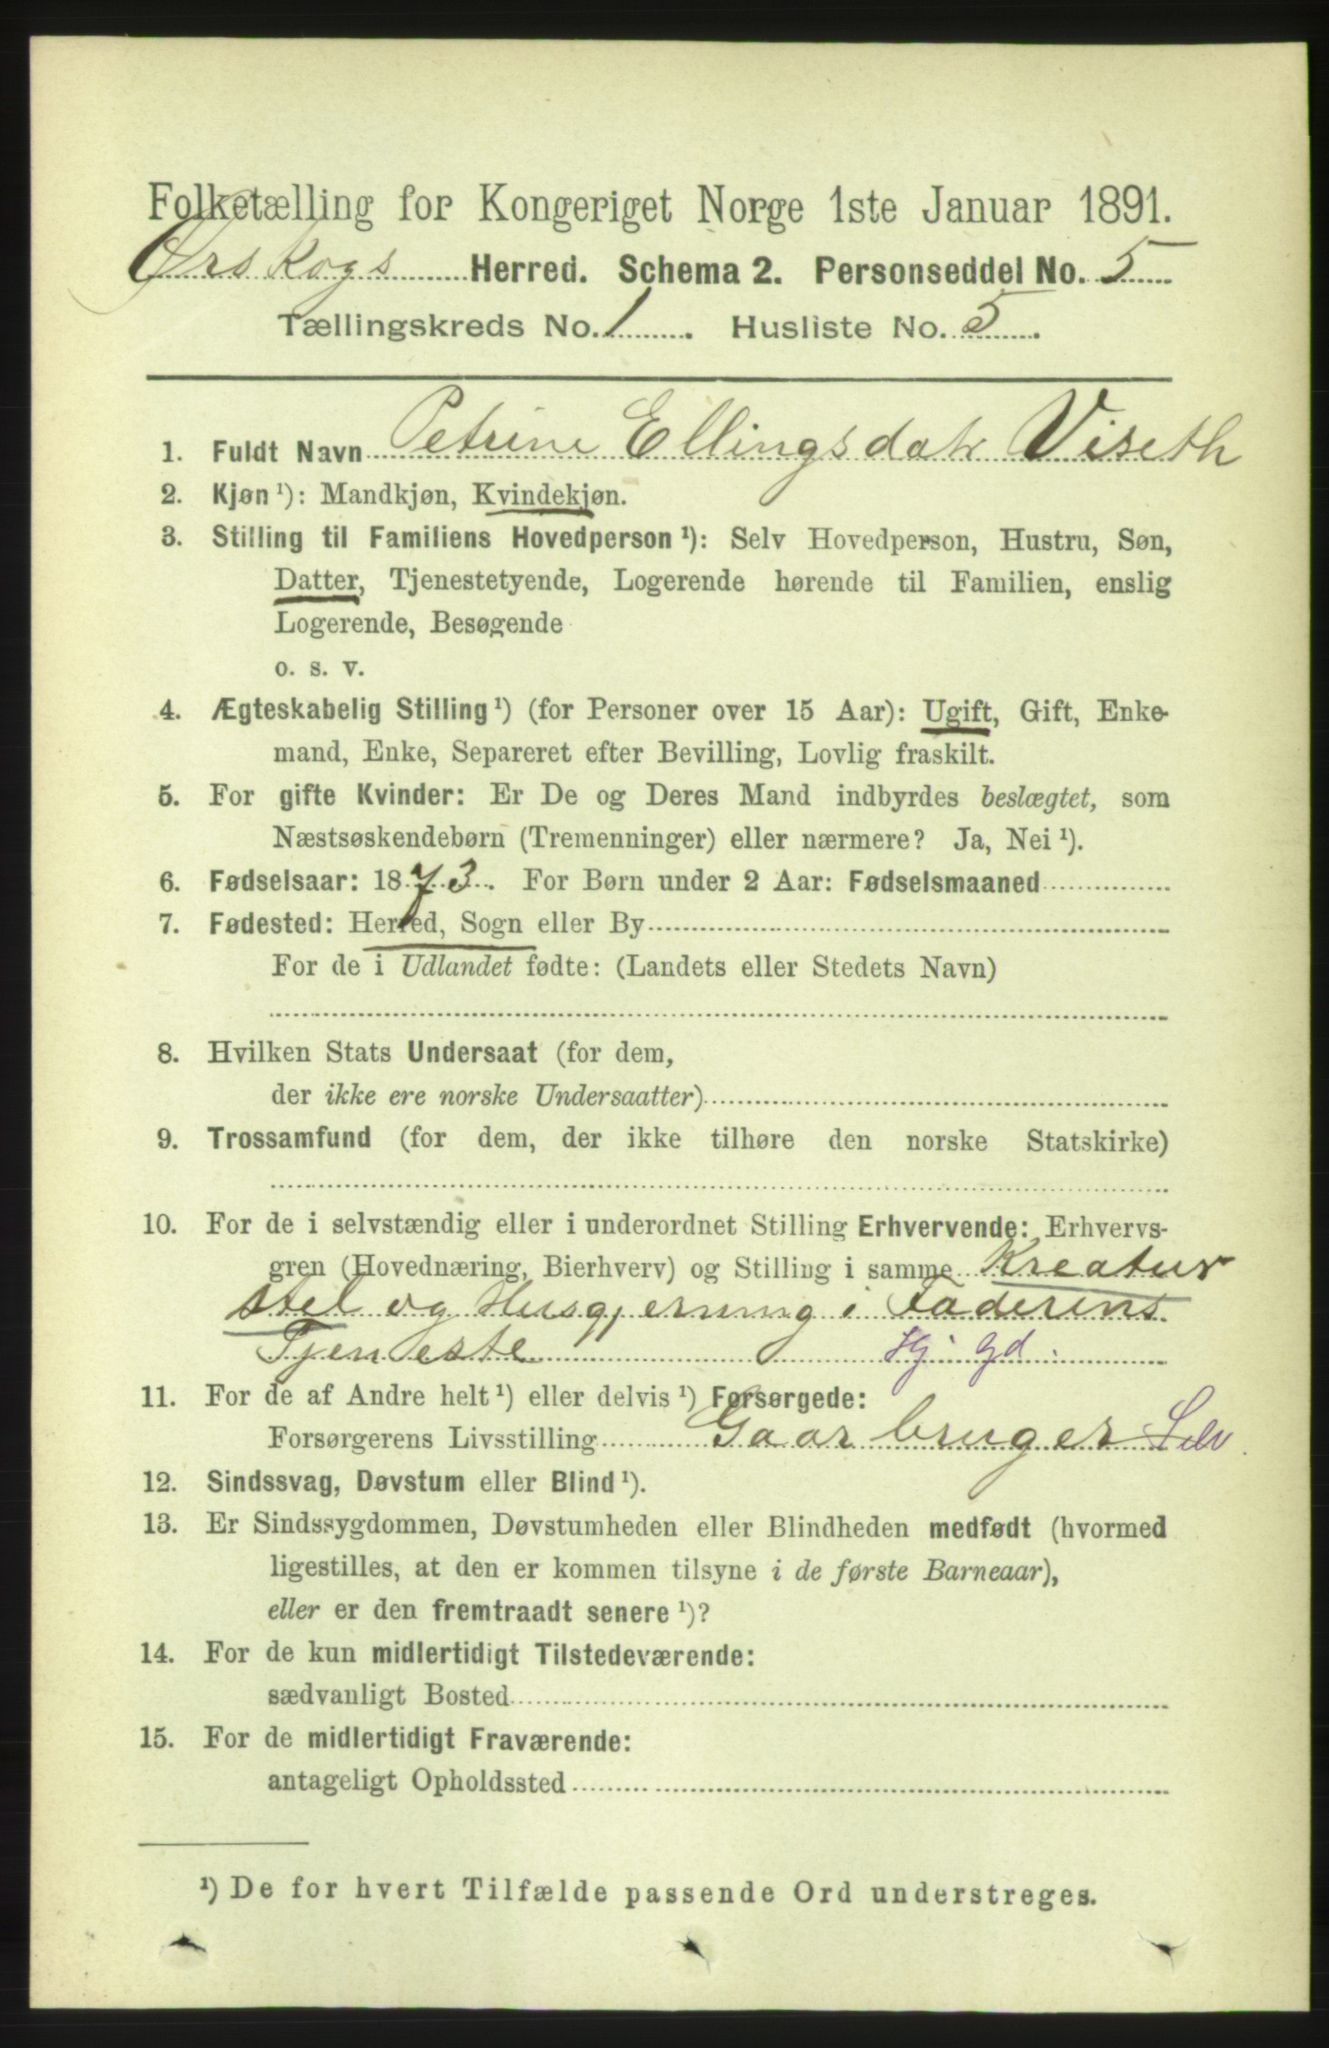 Folketælling for Kongeriget Norge 1ste Januar 1891.
Ørskogs Herred. Schema 2. Personseddel No. 5
Tællingskreds No. 1. Husliste No. 5.
1. Fuldt Navn Petrine Ellingsdatr Viseth
2. Kjøn ¹): Mandkjøn, Kvindekjøn.
3. Stilling til Familiens Hovedperson ¹): Selv Hovedperson, Hustru, Søn,
Datter, Tjenestetyende, Logerende hørende til Familien, enslig
Logerende, Besøgende
o. s. v.
4. Ægteskabelig Stilling ¹) (for Personer over 15 Aar): Ugift, Gift, Enke-
mand, Enke, Separeret efter Bevilling, Lovlig fraskilt.
5. For gifte Kvinder: Er De og Deres Mand indbyrdes beslægtet, som
Næstsøskendebørn (Tremenninger) eller nærmere? Ja, Nei ¹).
6. Fødselsaar: 1873. For Børn under 2 Aar: Fødselsmaaned
7. Fødested: Herred, Sogn eller By
For de i Udlandet fødte: (Landets eller Stedets Navn)
8. Hvilken Stats Undersaat (for dem,
der ikke ere norske Undersaatter)
9. Trossamfund (for dem, der ikke tilhøre den norske Statskirke)
10. For de i selvstændig eller i underordnet Stilling Erhvervende: Erhvervs-
gren (Hovednæring, Bierhverv) og Stilling i samme Kreatur
stel og Husgjerning i Faderens
Tjeneste Hj gd.
11. For de af Andre helt ¹) eller delvis ¹) Forsørgede:
Forsørgerens Livsstilling Gaarbruger Selv.
12. Sindssvag, Døvstum eller Blind ¹).
13. Er Sindssygdommen, Døvstumheden eller Blindheden medfødt (hvormed
ligestilles, at den er kommen tilsyne i de første Barneaar),
eller er den fremtraadt senere ¹)?
14. For de kun midlertidigt Tilstedeværende:
sædvanligt Bosted
15. For de midlertidigt Fraværende:
antageligt Opholdssted
¹) De for hvert Tilfælde passende Ord understreges.